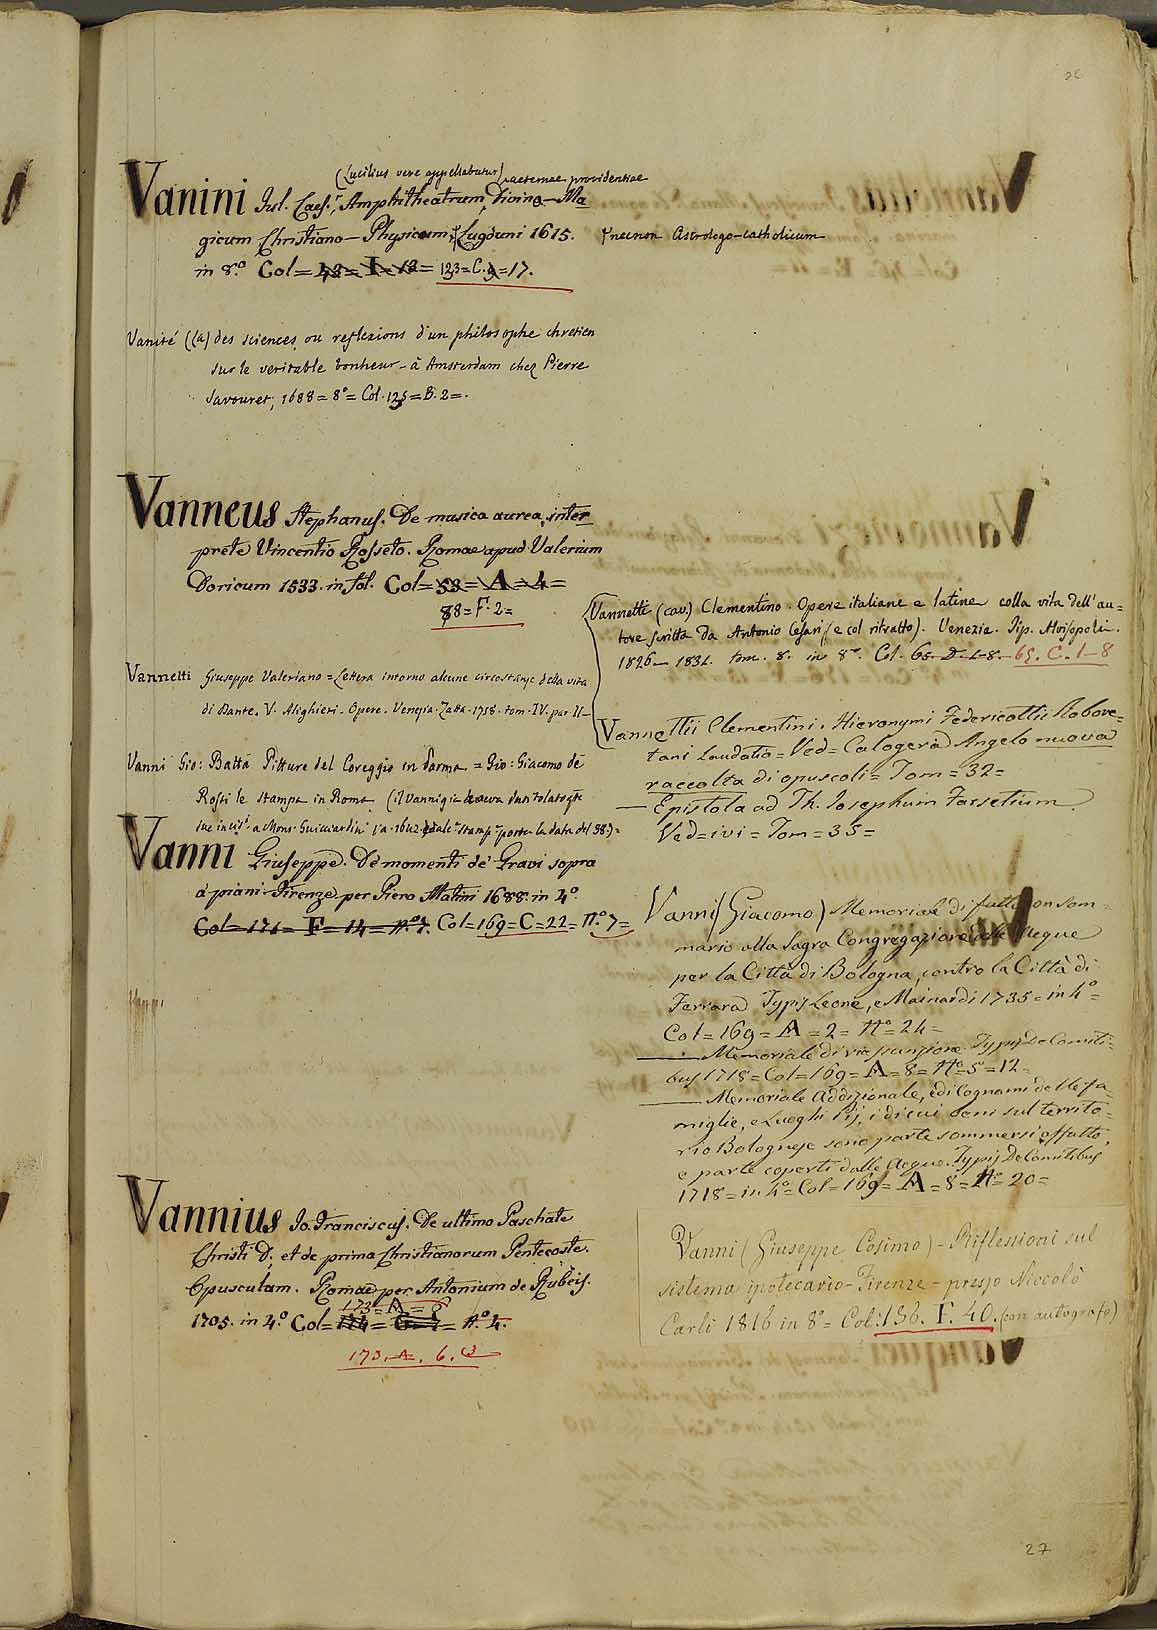 26
(Lucilius vere appellabatur) aeternae providentiae
Vanini Jul. Caes.r Amphitheatrum Divino-Ma
gicum Christiano-Physicum, Lugduni 1615. necnon Astrologo-catholicum
in 8.º Col=43=I=12= 123=C.9=17.
Vanité (la) des sciences ou reflexions d'un philosophe chretien
sur le veritable bonheur - à Amsterdam chez Pierre
Savouret, 1688=8º=Col.125=B.2=.
Vanneus Stephanus. De musica aurea, inter
prete Vincentio Rosseto. Romae apud Valerium
Doricum 1533. in fol. Col=53=A=4=
88=F.2=
Vannetti Giuseppe Valeriano=Lettera intorno alcune circostanze della vita
di Dante. V. Alighieri. Opere. Venezia. Zatta. 1758. tom. IV. par. II-
Vanni Gio: Batta Pitture del Coreggio in Parma = Gio: Giacomo de
Rossi le stampa in Roma (il Vanni già
a Mons.r Guicciardini l'a. 1642 porta la data del 58)=
Vanni Giuseppe. De momenti de' Gravi sopra
à piani. Firenze per Piero Matini 1688. in 4º.
Col=171=F=14=N.º7. Col=169=C=22=N.º7=
Vanni
Vannius Jo. Franciscus. De ultimo Paschate
Christi D. et de prima Christianorum Pentecoste.
Opusculum. Romae per Antonium de Rubeis.
173=A=8
1705. in 4.º Col=174=G=7=N.º4.
173. A. 6.
Vannetti (cav.) Clementino. Opere italiane e latine colla vita dell'au=
tore scritta da Antonio Cesari (e col ritratto). Venezia. Tip. Alvisopoli.
1826-1831. tom. 8. in 8º. Col. 65. D. 1-8. 65. C. 1-8
Vannettii Clementini. Hieronymi Federicottii Robore=
tani Laudatio=Ved=Calogerà Angelo nuova
raccolta di opuscoli=Tom=32=
— Epistola ad Th. Josephum Farsetium.
Ved=ivi=Tom=35=
Vanni (Giacomo) Memoriale di fatto con som=
mario alla Sagra Congregazione delle Acque
per la Città di Bologna, contro la Città di
Ferrara Typis Leone, e Mainardi 1735=in 4º=
Col=169=A=2=Nº 24=
—— Memoriale di Typis De Comiti=
bus 1718=Col=169=A=8=Nº=5=12=
—— Memoriale Addizionale, e di Cognami delle fa=
miglie, e Luoghi Pij, i di cui beni sul territo=
rio Bolognese sono parte sommersi affatto,
e parte coperti dalle Acque. Typis De Comitibus
1718=in 4º=Col=169=A=8=Nº=20=
Vanni (Giuseppe Cosimo) - Riflessioni sul
sistema ipotecario - Firenze - presso Niccolò
Carli 1816 in 8º - Col: 136. F. 40. (con autografo)
27